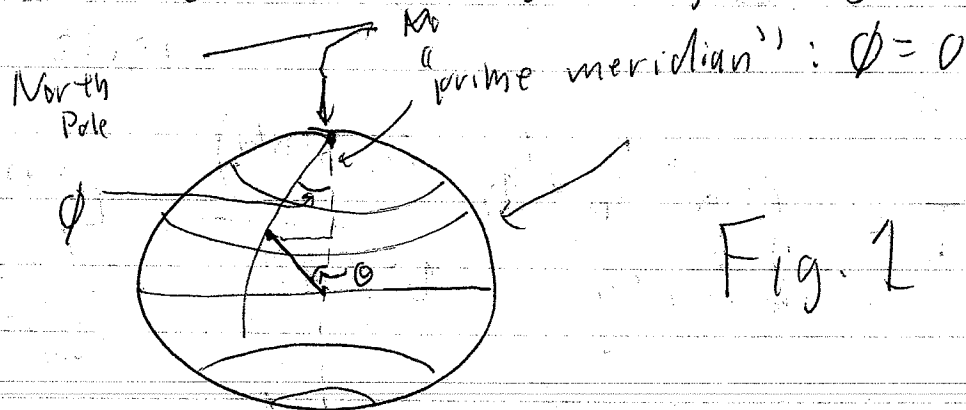 "prime meridian" : ϕ = 0
North
Pole
ϕ
θ
Fig. 1